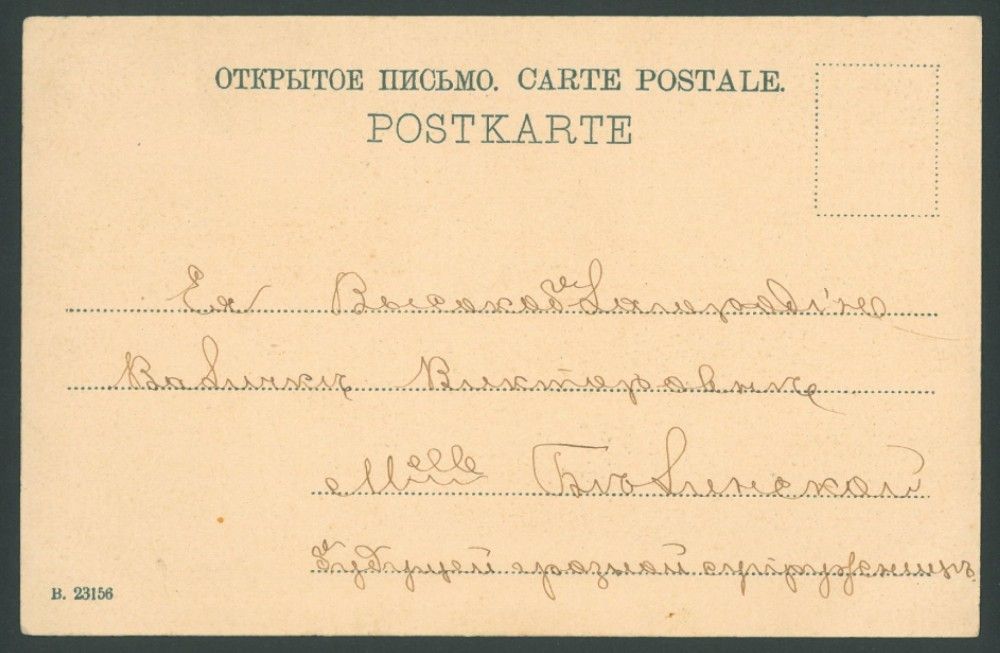 ОТКРЫТОЕ ПИСЬМО. CARTE POSTALE.
POSTKARTE
Ея Высокоблагородію
Викторовнѣ
Mlle Бѣлинской
Будущей грозной
B. 23156